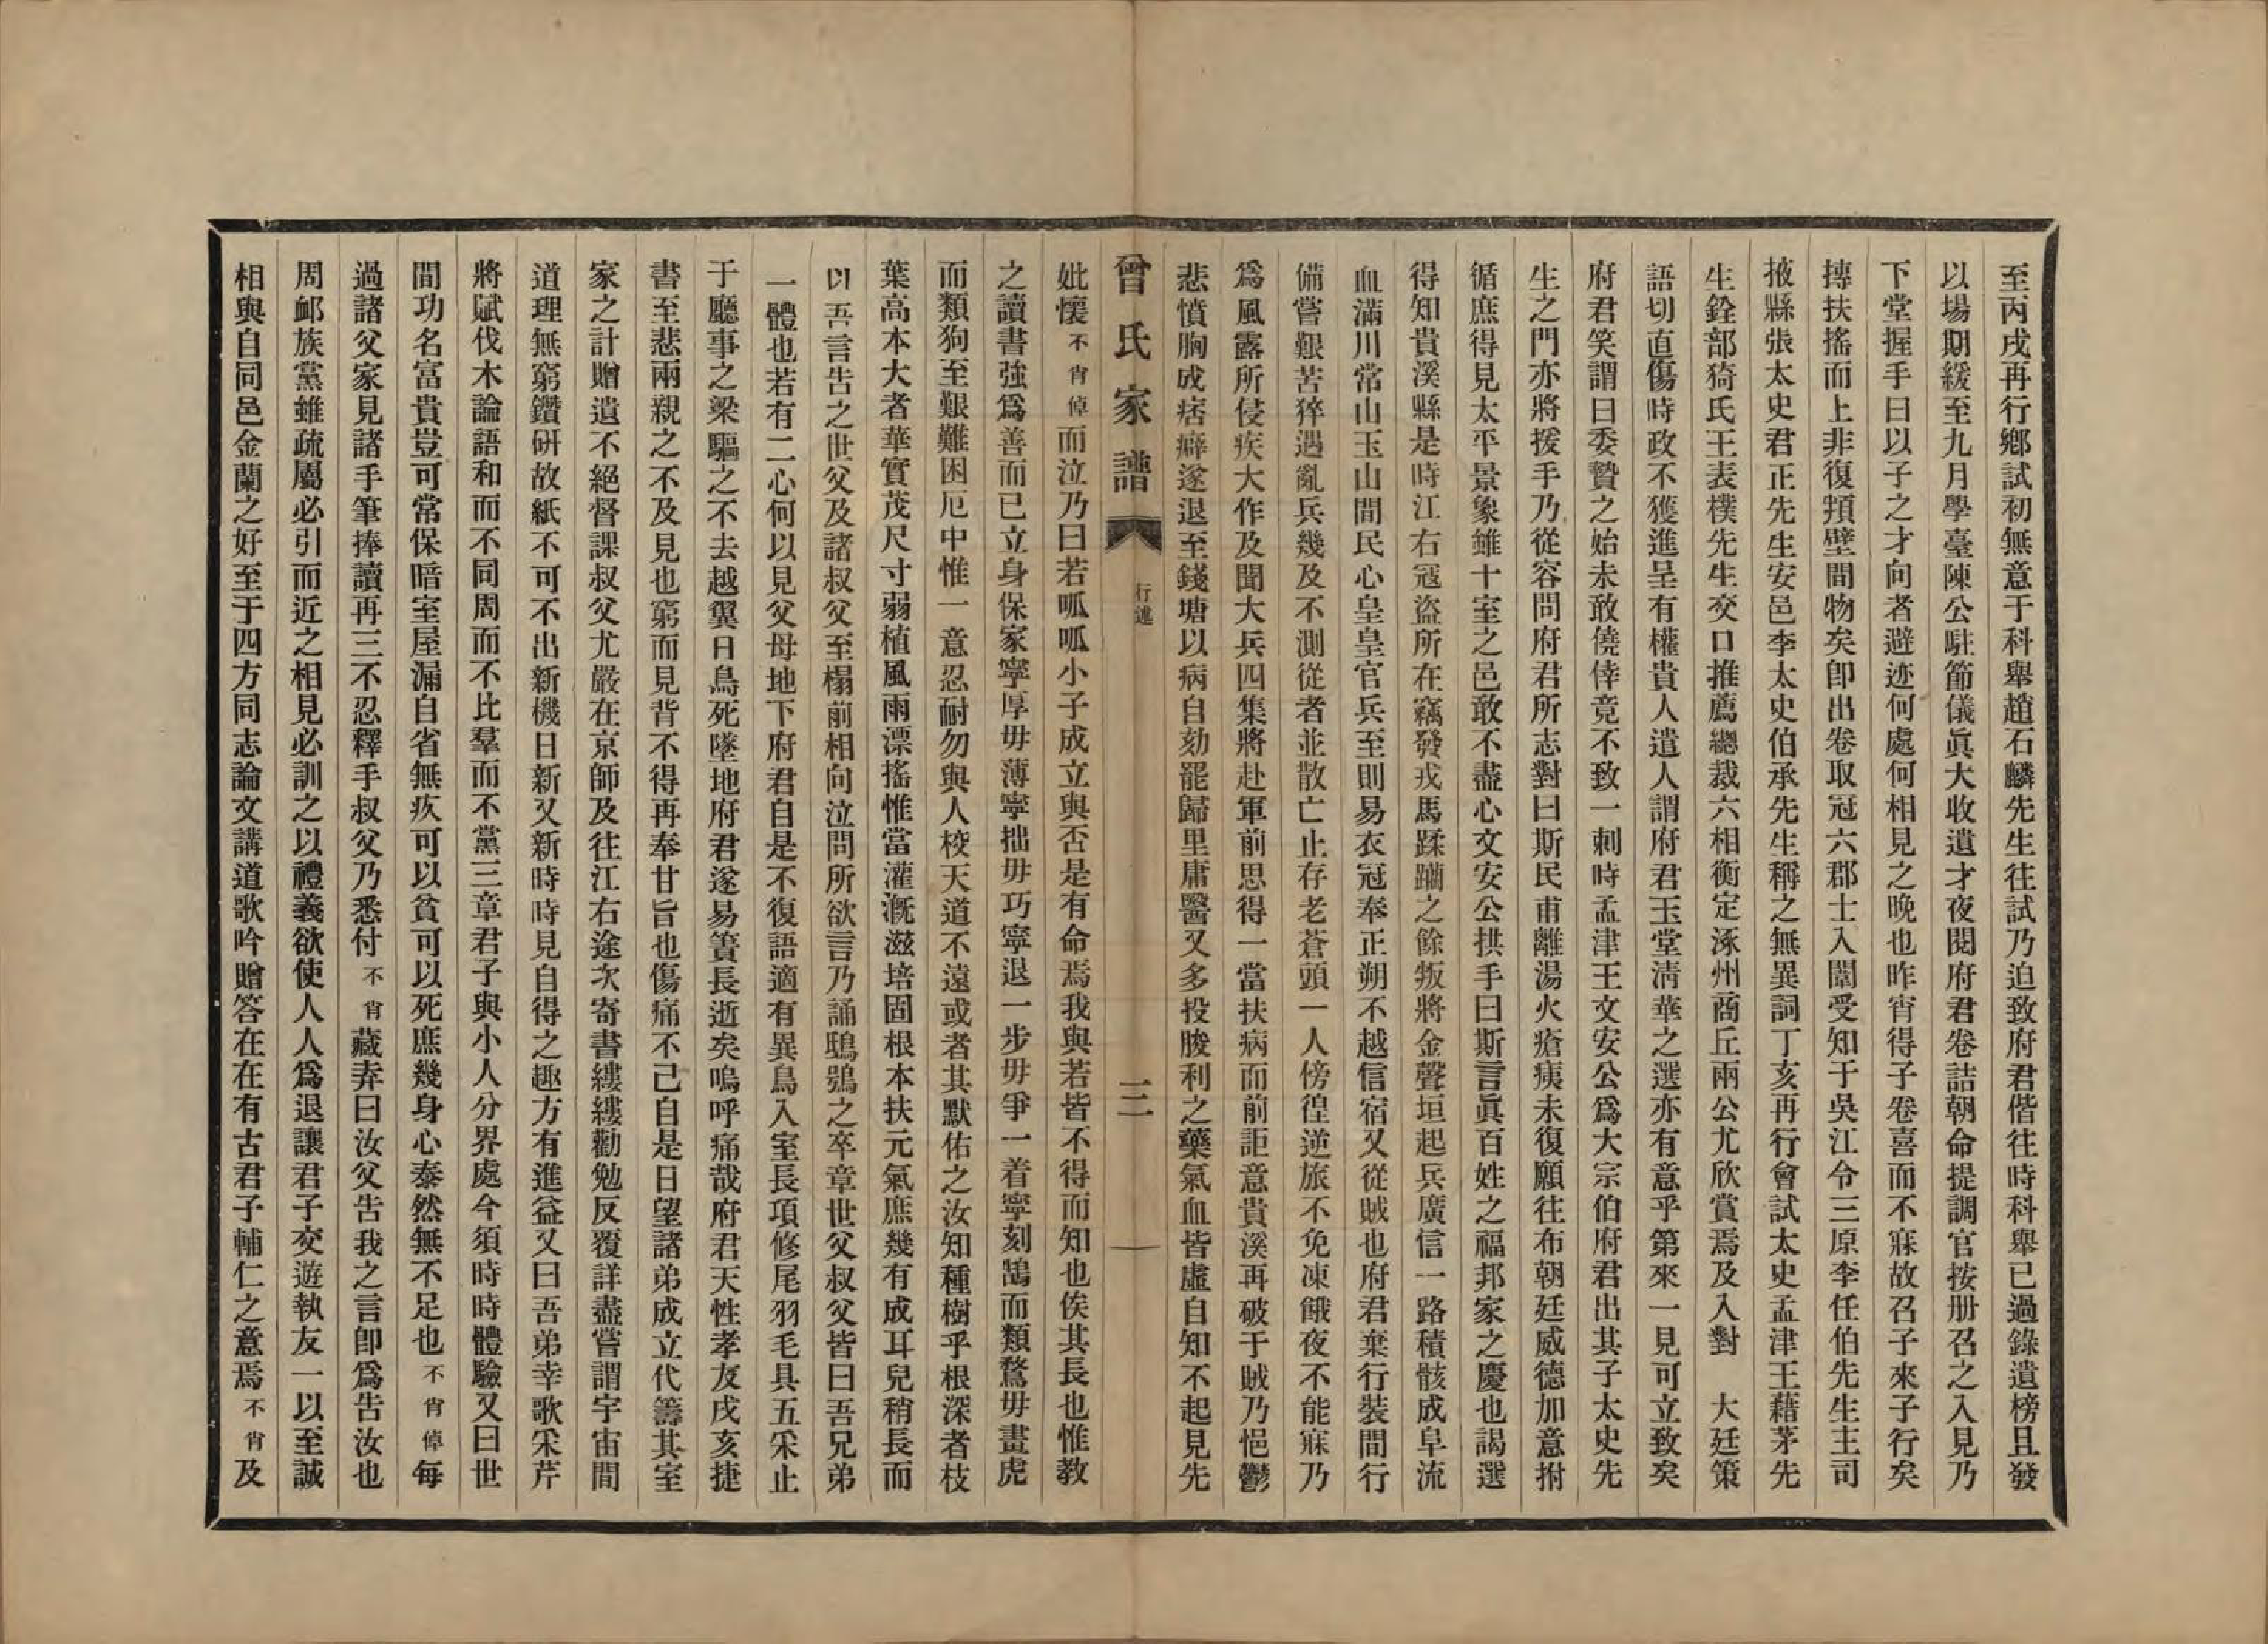 至丙戌再行鄉試初無意于科舉趙石麟先生往試乃迫致府君偕往時科舉已過錄遺榜且發
以場期緩至九月學臺陳公駐節儀眞大收遺才夜閱府君卷詰朝命提調官按册召之入見乃
下堂握手曰以子之才向者避迹何處何相見之晚也昨宵得子卷喜而不寐故召子來子行矣
摶扶搖而上非復頖壁間物矣卽出卷取冠六郡士入闈受知于吳江令三原李任伯先生主司
掖縣張太史君正先生安邑李太史伯承先生稱之無異詞丁亥再行會試太史孟津王藉茅先
生銓部猗氏王表樸先生交口推薦總裁六相衡定涿州商丘兩公尤欣賞焉及入對　大廷策
語切直傷時政不獲進呈有權貴人遣人謂府君玉堂淸華之選亦有意乎第來一見可立致矣
府君笑謂曰委贄之始未敢僥倖竟不致一刺時孟津王文安公爲大宗伯府君出其子太史先
生之門亦將援手乃從容問府君所志對曰斯民甫離湯火瘡痍未復願往布朝廷威德加意拊
循庶得見太平景象雖十室之邑敢不盡心文安公拱手曰斯言眞百姓之福邦家之慶也謁選
得知貴溪縣是時江右冦盜所在竊發戎馬蹂躪之餘叛將金聲垣起兵廣信一路積骸成阜流
血滿川常山玉山間民心皇皇官兵至則易衣冠奉正朔不越信宿又從賊也府君棄行裝間行
備嘗艱苦猝遇亂兵幾及不測從者並散亡止存老蒼頭一人傍徨逆旅不免凍餓夜不能寐乃
爲風露所侵疾大作及聞大兵四集將赴軍前思得一當扶病而前詎意貴溪再破于賊乃悒鬱
悲憤胸成痞癖遂退至錢塘以病自劾罷歸里庸醫又多投朘利之藥氣血皆虛自知不起見先
曾氏家譜　行述　三
妣懷不肖倬而泣乃曰若呱呱小子成立與否是有命焉我與若皆不得而知也俟其長也惟教
之讀書強爲善而已立身保家寧厚毋薄寧拙毋巧寧退一步毋爭一着寧刻鵠而類鶩毋畫虎
而類狗至艱難困厄中惟一意忍耐勿與人校天道不遠或者其默佑之汝知種樹乎根深者枝
葉高本大者華實茂尺寸弱植風雨漂搖惟當灌漑滋培固根本扶元氣庶幾有成耳兒稍長而
以吾言告之世父及諸叔父至榻前相向泣問所欲言乃誦鴟鴞之卒章世父叔父皆曰吾兄弟
一體也若有二心何以見父母地下府君自是不復語適有異鳥入室長項修尾羽毛具五采止
于廳事之梁驅之不去越翼日鳥死墜地府君遂易簀長逝矣嗚呼痛哉府君天性孝友戌亥捷
書至悲兩親之不及見也窮而見背不得再奉甘旨也傷痛不已自是日望諸弟成立代籌其室
家之計贈遺不絕督課叔父尤嚴在京師及往江右途次寄書縷縷勸勉反覆詳盡嘗謂宇宙間
道理無窮鑽研故紙不可不出新機日新又新時時見自得之趣方有進益又曰吾弟幸歌采芹
將賦伐木論語和而不同周而不比羣而不黨三章君子與小人分界處今須時時體驗又曰世
間功名富貴豈可常保暗室屋漏自省無疚可以貧可以死庶幾身心泰然無不足也不肖倬每
過諸父家見諸手筆捧讀再三不忍釋手叔父乃悉付不肖藏弆曰汝父告我之言卽爲告汝也
周䘏族黨雖疏屬必引而近之相見必訓之以禮義欲使人人爲退讓君子交遊執友一以至誠
相與自同邑金蘭之好至于四方同志論文講道歌吟贈答在在有古君子輔仁之意焉不肖及